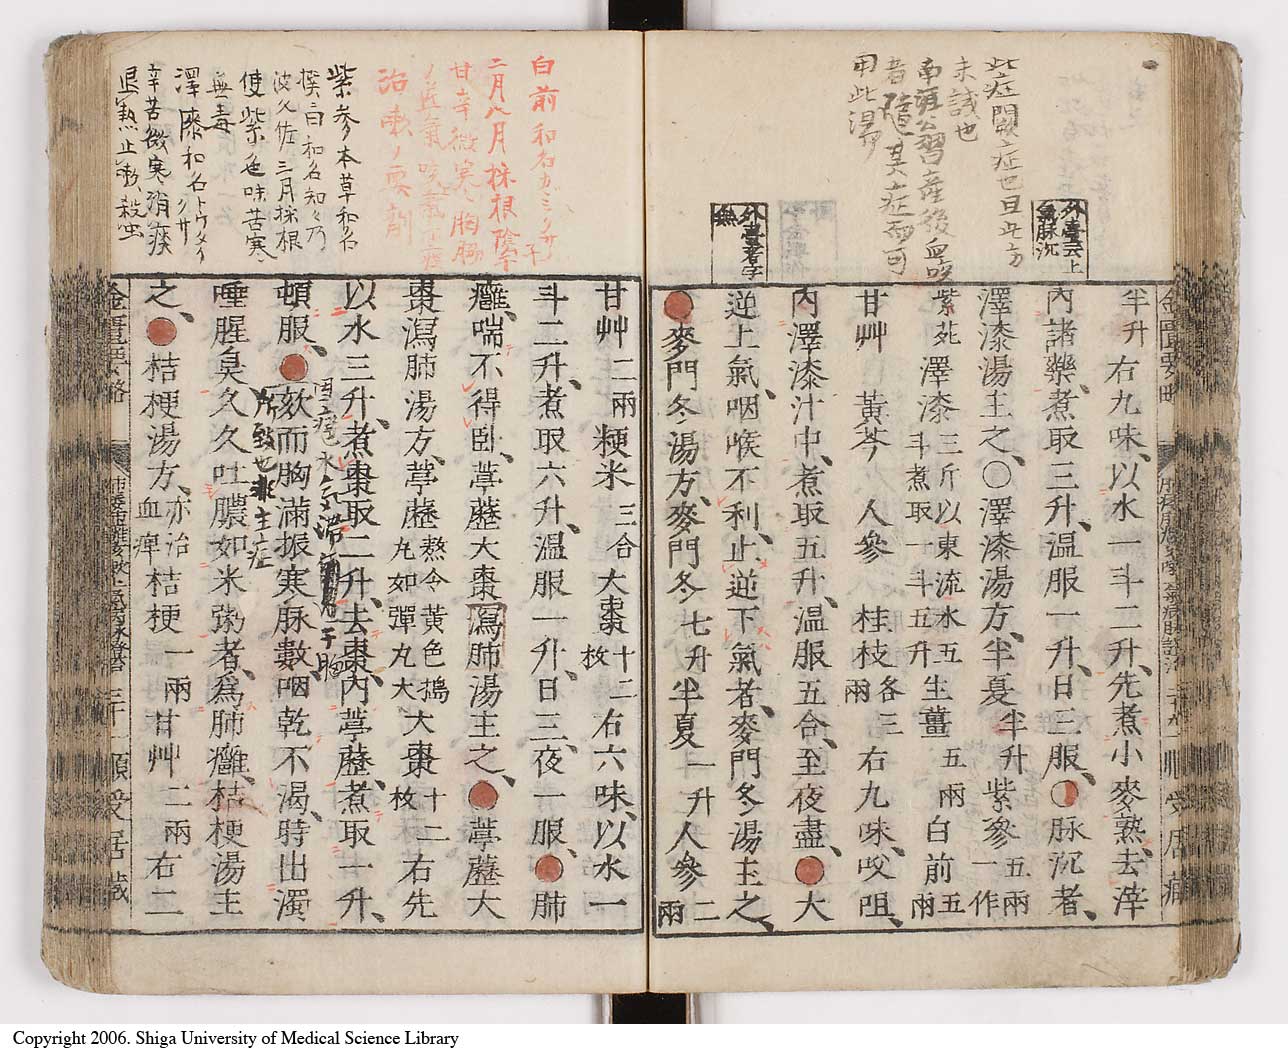 此症閟欬症也且此方
未試也
用此湯
外臺云上
氣脉沉
外臺者字
無
半升右九味、以水一斗二升、先煮小麥熟、去滓
內諸藥、煮取三升、溫服一升、日三服、〇脉沉者、
澤漆湯主之、〇澤漆湯方、半夏半升紫參五兩一作
紫菀澤漆三斤以東流水五斗煮取一斗五升生薑五兩白前五兩
甘艸 黃芩 人參 桂枝各三兩右九味、㕮咀、
內澤漆汁中、煮取五升、溫服五合、至夜盡、●大
逆上氣、咽喉不利、止逆下氣者、麥門冬湯主之、
●麥門冬湯方、麥門冬七升半夏一升人參二兩
甘艸二兩粳米三合大棗十二枚右六味、以水一
斗二升、煮取六升、溫服一升、日三、夜一服、●肺
癰、喘不得臥、葶藶大棗瀉肺湯主之、●葶藶大
棗瀉肺湯方、葶藶熬令黃色搗丸如彈丸大大棗十二枚右先
以水三升、煮棗取二升、去棗、內葶藶、煮取一升、
頓服、●欬而胸滿振寒脉數、咽乾不渴、時出濁
唾腥臭、久久吐膿如米粥者、爲肺癰、桔梗湯主
之、●桔梗湯方、亦治血痺桔梗一兩甘艸二兩右二
白前和名カミノサ
二月八月採根陰干
甘辛微寒胸脇
治嗽ノ要劑
紫參本草和名
波久佐三月採根
使紫色味苦寒
無毒
辛苦微寒消痰
退熱止嗽殺虫
所致也非主症
金匱要略
三十一順受居藏